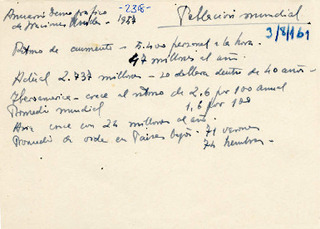 Anuario Demografico -2358-
de Naciones Unidas - 1957
Poblacion mundial.
3/8/161
Ritmo de aumento - 5.400 personas a la hora.
47 millones al año.
Actual 2.737 millones - se doblara dentro de 40 años -
Iberoamerica - crece al ritmo de 2,6 por 100 anual
Promedio mundial 1,6 por 100
Asia crece con 24 millones al año.
Promedio de vida en Paises bajos - 71 varones
74 hembras -